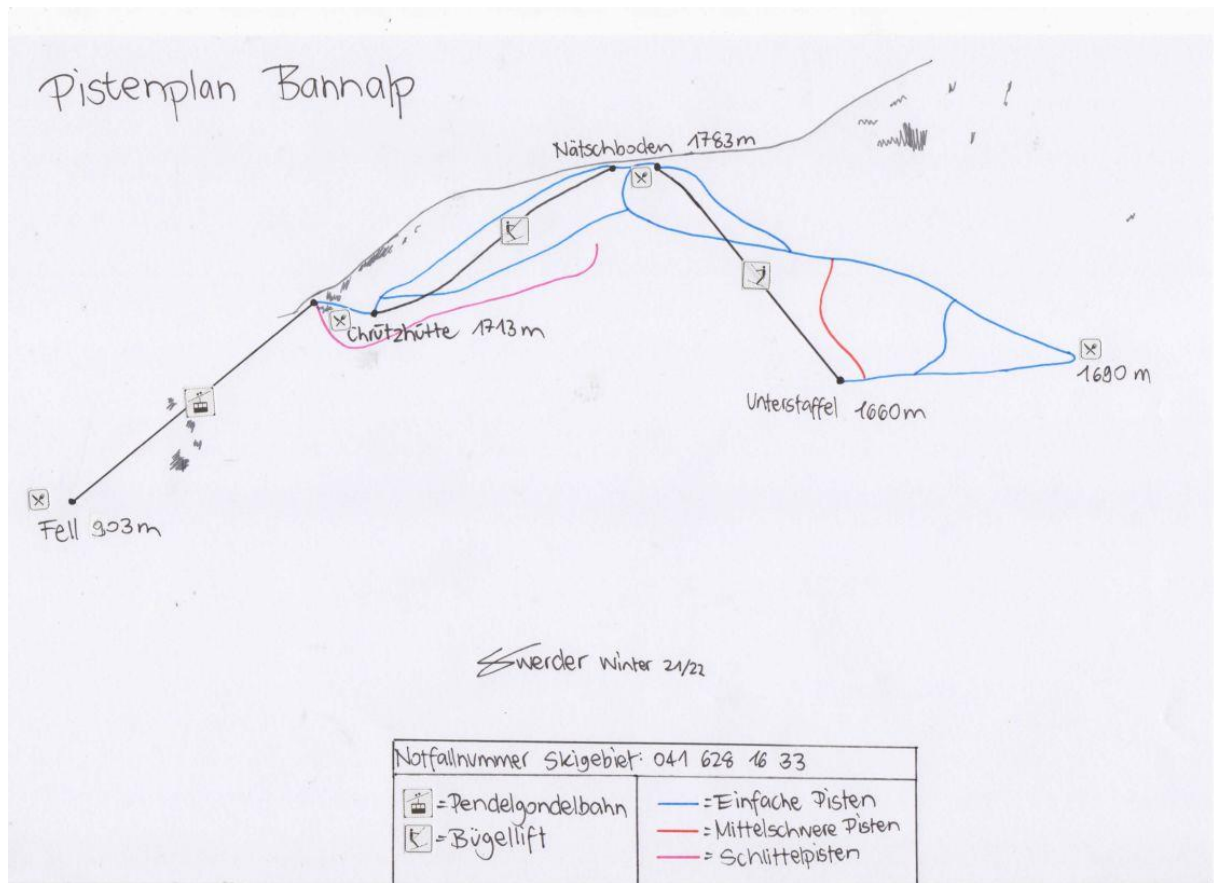 Pistenplan Bannalp
Nätschboden 1783m
Chrützhütte 1713m
1690 m
Unterstaffel 1660m
Fell 903m
Swerder Winter 21/22
Notfallnummer Skigebiet: 041 628 16 33
=Pendelgondelbahn
=Bügellift
=Einfache Pisten
=Mittelschwere Pisten
= Schlittelpisten